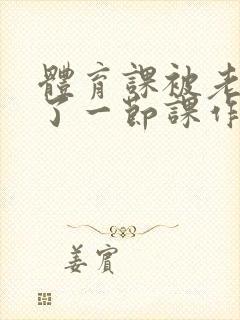 體育課被老
了一節課作
姜賓